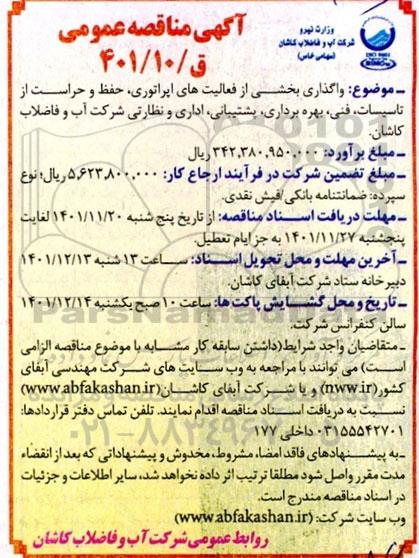 آگهی مناقصه عمومی
ق/۴۰۱/۱۰
وزارت نیرو
شرکت آب و فاضلاب کاشان
(سهامی خاص)
ـ موضوع: واگذاری بخشی از فعالیت های اپراتوری، حفظ و حراست از
تاسیسات، فنی، بهره برداری، پشتیبانی، اداری و نظارتی شرکت آب و فاضلاب
کاشان.
ـ مبلغ برآورد: ۳۴۲,۳۸۰,۹۵۰,۰۰۰ ریال
ـ مبلغ تضمین شرکت در فرآیند ارجاع کار: ۵,۶۲۳,۸۰۰,۰۰۰ ریال؛ نوع
سپرده: ضمانتنامه بانکی/فیش نقدی.
ـ مهلت دریافت اسناد مناقصه: از تاریخ پنج شنبه ۱۴۰۱/۱۱/۲۰ لغایت
پنجشنبه ۱۴۰۱/۱۱/۲۷ به جز ایام تعطیل.
ـ آخرین مهلت و محل تحویل اسناد: ساعت ۱۳ شنبه ۱۴۰۱/۱۲/۱۳
دبیرخانه ستاد شرکت آبفای کاشان.
ـ تاریخ و محل گشایش پاکت ها: ساعت ۱۰ صبح یکشنبه ۱۴۰۱/۱۲/۱۴
سالن کنفرانس شرکت.
ـ متقاضیان واجد شرایط(داشتن سابقه کار مشابه با موضوع مناقصه الزامی
است) می توانند با مراجعه به وب سایت های شرکت مهندسی آبفای
کشور(nww.ir) و یا شرکت آبفای کاشان(www.abfakashan.ir)
نسبت به دریافت اسناد مناقصه اقدام نمایند. تلفن تماس دفتر قراردادها:
۰۳۱۵۵۵۴۲۷۰۱ داخلی ۱۷۷
ـ به پیشنهادهای فاقد امضا، مشروط، مخدوش و پیشنهاداتی که بعد از انقضاء
مدت مقرر واصل شود مطلقا ترتیب اثر داده نخواهد شد، سایر اطلاعات و جزئیات
در اسناد مناقصه مندرج است.
وب سایت شرکت: (www.abfakashan.ir)
روابط عمومی شرکت آب و فاضلاب کاشان